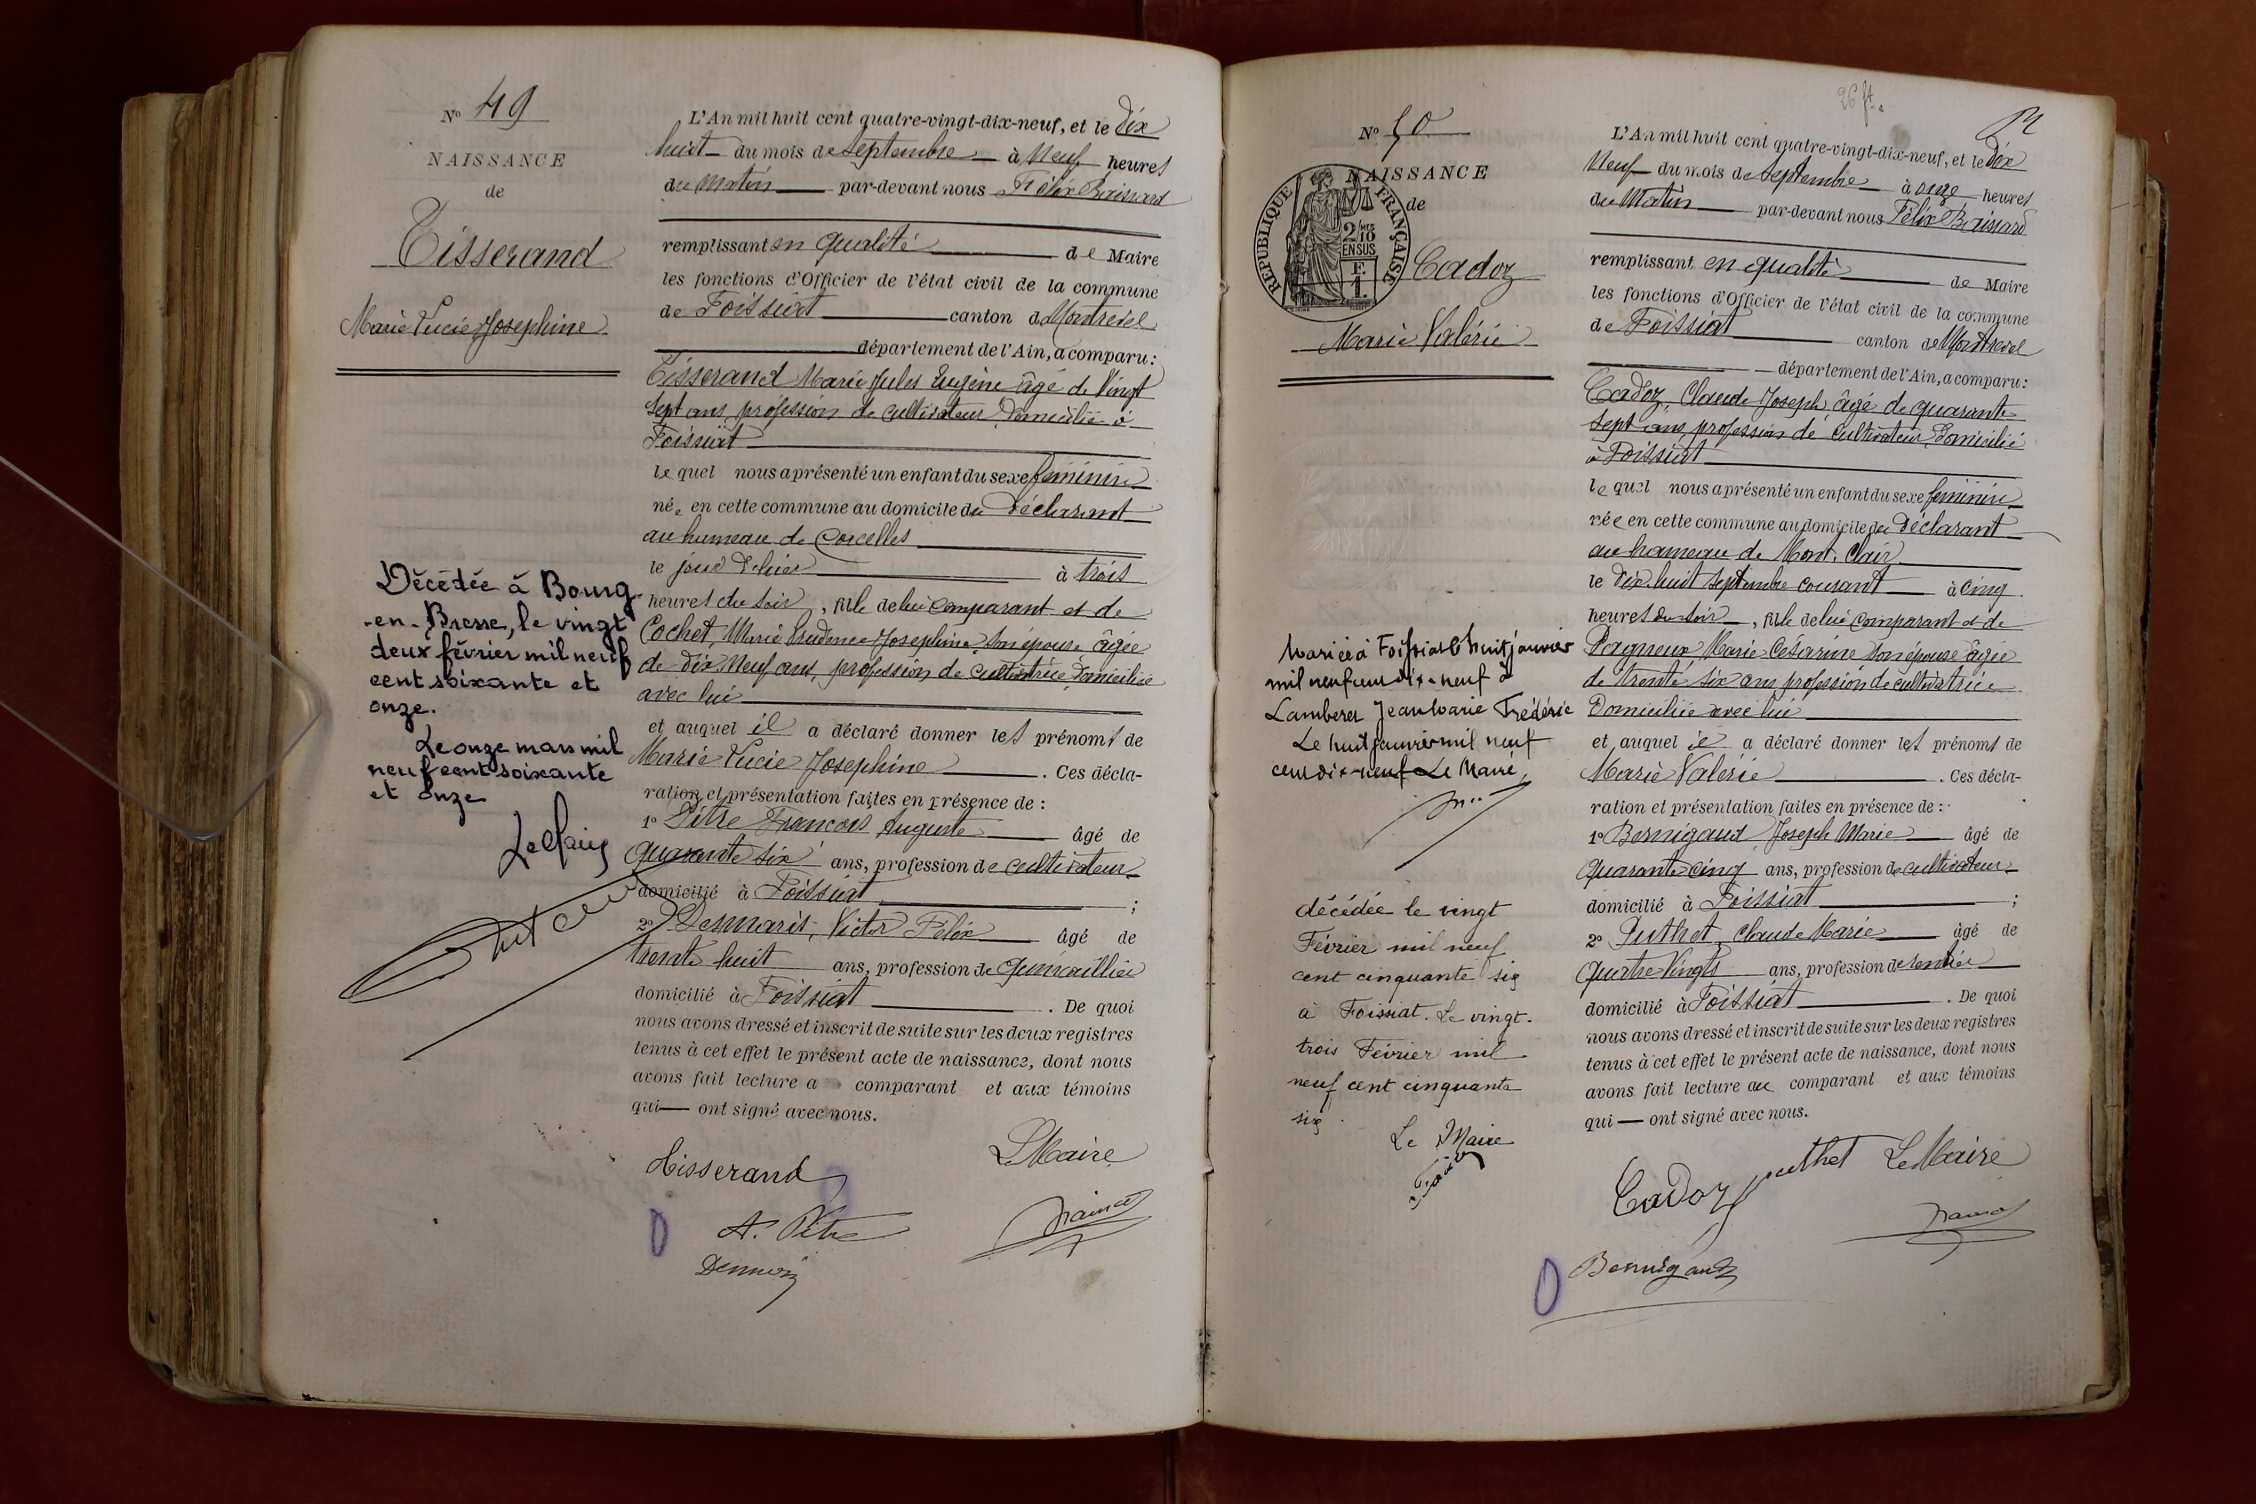 N° 49
NAISSANCE
de
Tisserand
Marie Lucie Josephine
L'An mil huit cent quatre-vingt-dix-neuf, et le Dix
huit du mois de Septembre à Neuf heures
du Matin par-devant nous Félix
remplissant en qualité de Maire
les fonctions d'Officier de l'état civil de la commune
de Foissiat canton de Montrevel
département de l'Ain, a comparu :
Tisserand Marie Jules Eugène âgé de Vingt
Sept ans, profession de cultivateur Domicilié à
Foissiat
le quel nous a présenté un enfant du sexe féminin
née en cette commune au domicile du Déclarant
au hameau de Corcelles
le jour d'hier à trois
heures du soir, fille de lui comparant et de
Cochet, Marie Prudence Josephine, son épouse âgée
de Dix Neuf ans, profession de cultivatrice Domiciliée
avec lui
et auquel il a déclaré donner les prénoms de
Marie Lucie Josephine. Ces décla-
ration et présentation faites en présence de :
1° Pitre François Auguste âgé de
quarante six ans, profession de cultivateur
domicilié à Foissiat ;
2° Desmaris, Victor Félix âgé de
trente huit ans, profession de quincaillier
domicilié à Foissiat. De quoi
nous avons dressé et inscrit de suite sur les deux registres
tenus à cet effet le présent acte de naissance, dont nous
avons fait lecture a comparant et aux témoins
qui ont signé avec nous.
Tisserand
Le Maire
A. Pitre
Décédée à Bourg-
-en-Bresse, le vingt
deux février mil neuf
cent soixante et
onze.
Le onze mars mil
neuf cent soixante
et onze
Le Maire
26 ft.
N° 50
NAISSANCE
de
RÉPUBLIQUE FRANÇAISE
2/10 MES
EN SUS
F.
1.
Cadoz
Marie Valérie
L'An mil huit cent quatre-vingt-dix-neuf, et le Dix
Neuf du mois de Septembre à onze heures
du Matin par-devant nous Félix
remplissant en qualité de Maire
les fonctions d'Officier de l'état civil de la commune
de Foissiat canton de Montrevel
département de l'Ain, a comparu :
Cadoz, Claude Joseph âgé de quarante
Sept ans, profession de cultivateur Domicilié
à Foissiat
le quel nous a présenté un enfant du sexe féminin
née en cette commune au domicile du Déclarant
au hameau de Mont. Clair
le Dix huit Septembre courant à cinq
heures du soir, fille de lui comparant et de
Pagneux Marie Césarine son épouse âgée
de trente six ans profession de cultivatrice
Domiciliée avec lui
et auquel il a déclaré donner les prénoms de
Marie Valérie. Ces décla-
ration et présentation faites en présence de :
1° Bernigaud Joseph Marie âgé de
quarante cinq ans, profession de cultivateur
domicilié à Foissiat ;
2° Puthet Claude Marie âgé de
quatre Vingts ans, profession de rentier
domicilié à Foissiat. De quoi
nous avons dressé et inscrit de suite sur les deux registres
tenus à cet effet le présent acte de naissance, dont nous
avons fait lecture au comparant et aux témoins
qui ont signé avec nous.
Cadoz Puthet Le Maire
Bernigaud
Mariée à Foissiat le huit janvier
mil neuf cent dix-neuf à
Lamberet Jean Marie Frédéric
Le huit janvier mil neuf
cent dix-neuf Le Maire,
décédée le vingt
Février mil neuf
cent cinquante six
à Foissiat. Le vingt-
trois Février mil
neuf cent cinquante
six.
Le Maire